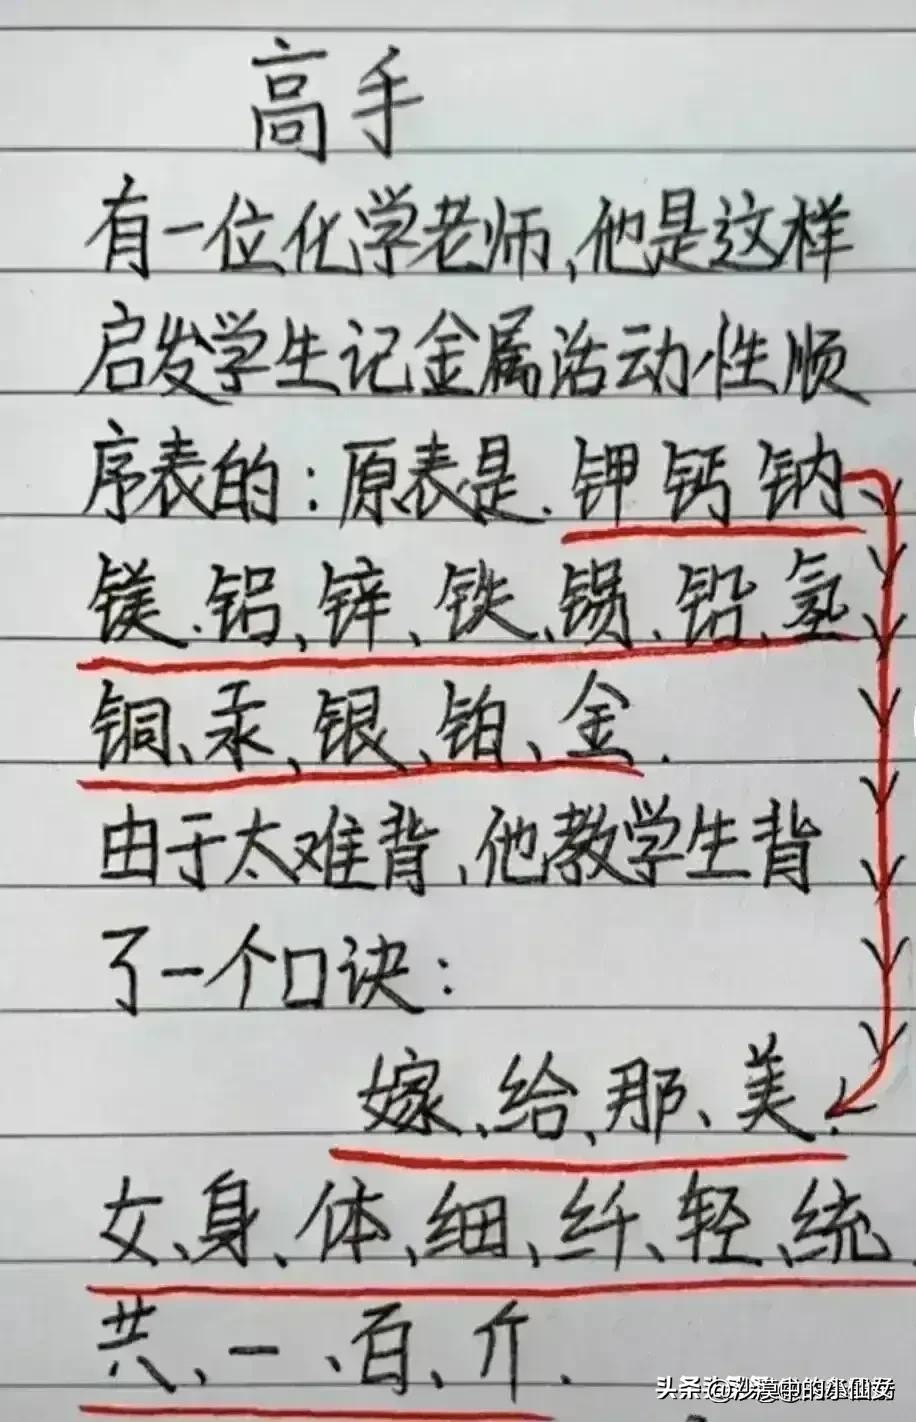 高手
有一位化学老师,他是这样
启发学生记金属活动性顺
序表的:原表是.钾钙钠
镁.铝、锌、铁、锡.铅、氢
铜、汞、银、铂、金.
由于太难背,他教学生背
了一个口诀:
嫁、给、那、美.
女、身、体、细、纤、轻、统.
共、一、百、斤.